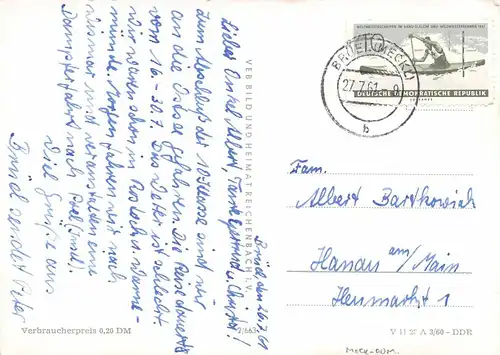 Brüel, den 26.7.61
Lieber Onkel Albert, Tante Gertrud u. Christa!
Zum Abschluß der 10. Klasse sind wir
an die Ostsee gefahren. Die Reise dauert
vom 16.-30.7. Das Wetter ist schlecht.
Wir waren schon in Rostock u. Warne-
münde. Morgen fahren wir nach
Wismar und veranstalten eine
Dampferfahrt nach Poel (Insel).
Viel Grüße aus
Brüel sendet Peter
Verbraucherpreis 0,20 DM
VEB BILD UND HEIMAT REICHENBACH I. V.
WELTMEISTERSCHAFTEN IM KANU-SLALOM UND WILDWASSERRENNEN 1961
DEUTSCHE DEMOKRATISCHE REPUBLIK
BRÜEL (MECKL)
27.7.61
b
Fam.
Albert Bartkowiak
Hanau am/Main
Heumarkt 1
V 11 27 A 3/60 - DDR